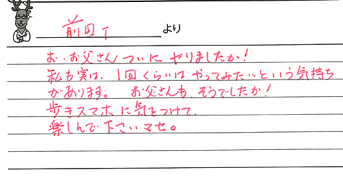 前回T より
お…お父さん ついに やりましたか!
私も実は、1回くらいは やってみたいという気持ち
があります。 お父さんも そうでしたか!
歩きスマホに気をつけて、
楽しんで下さいマセ。